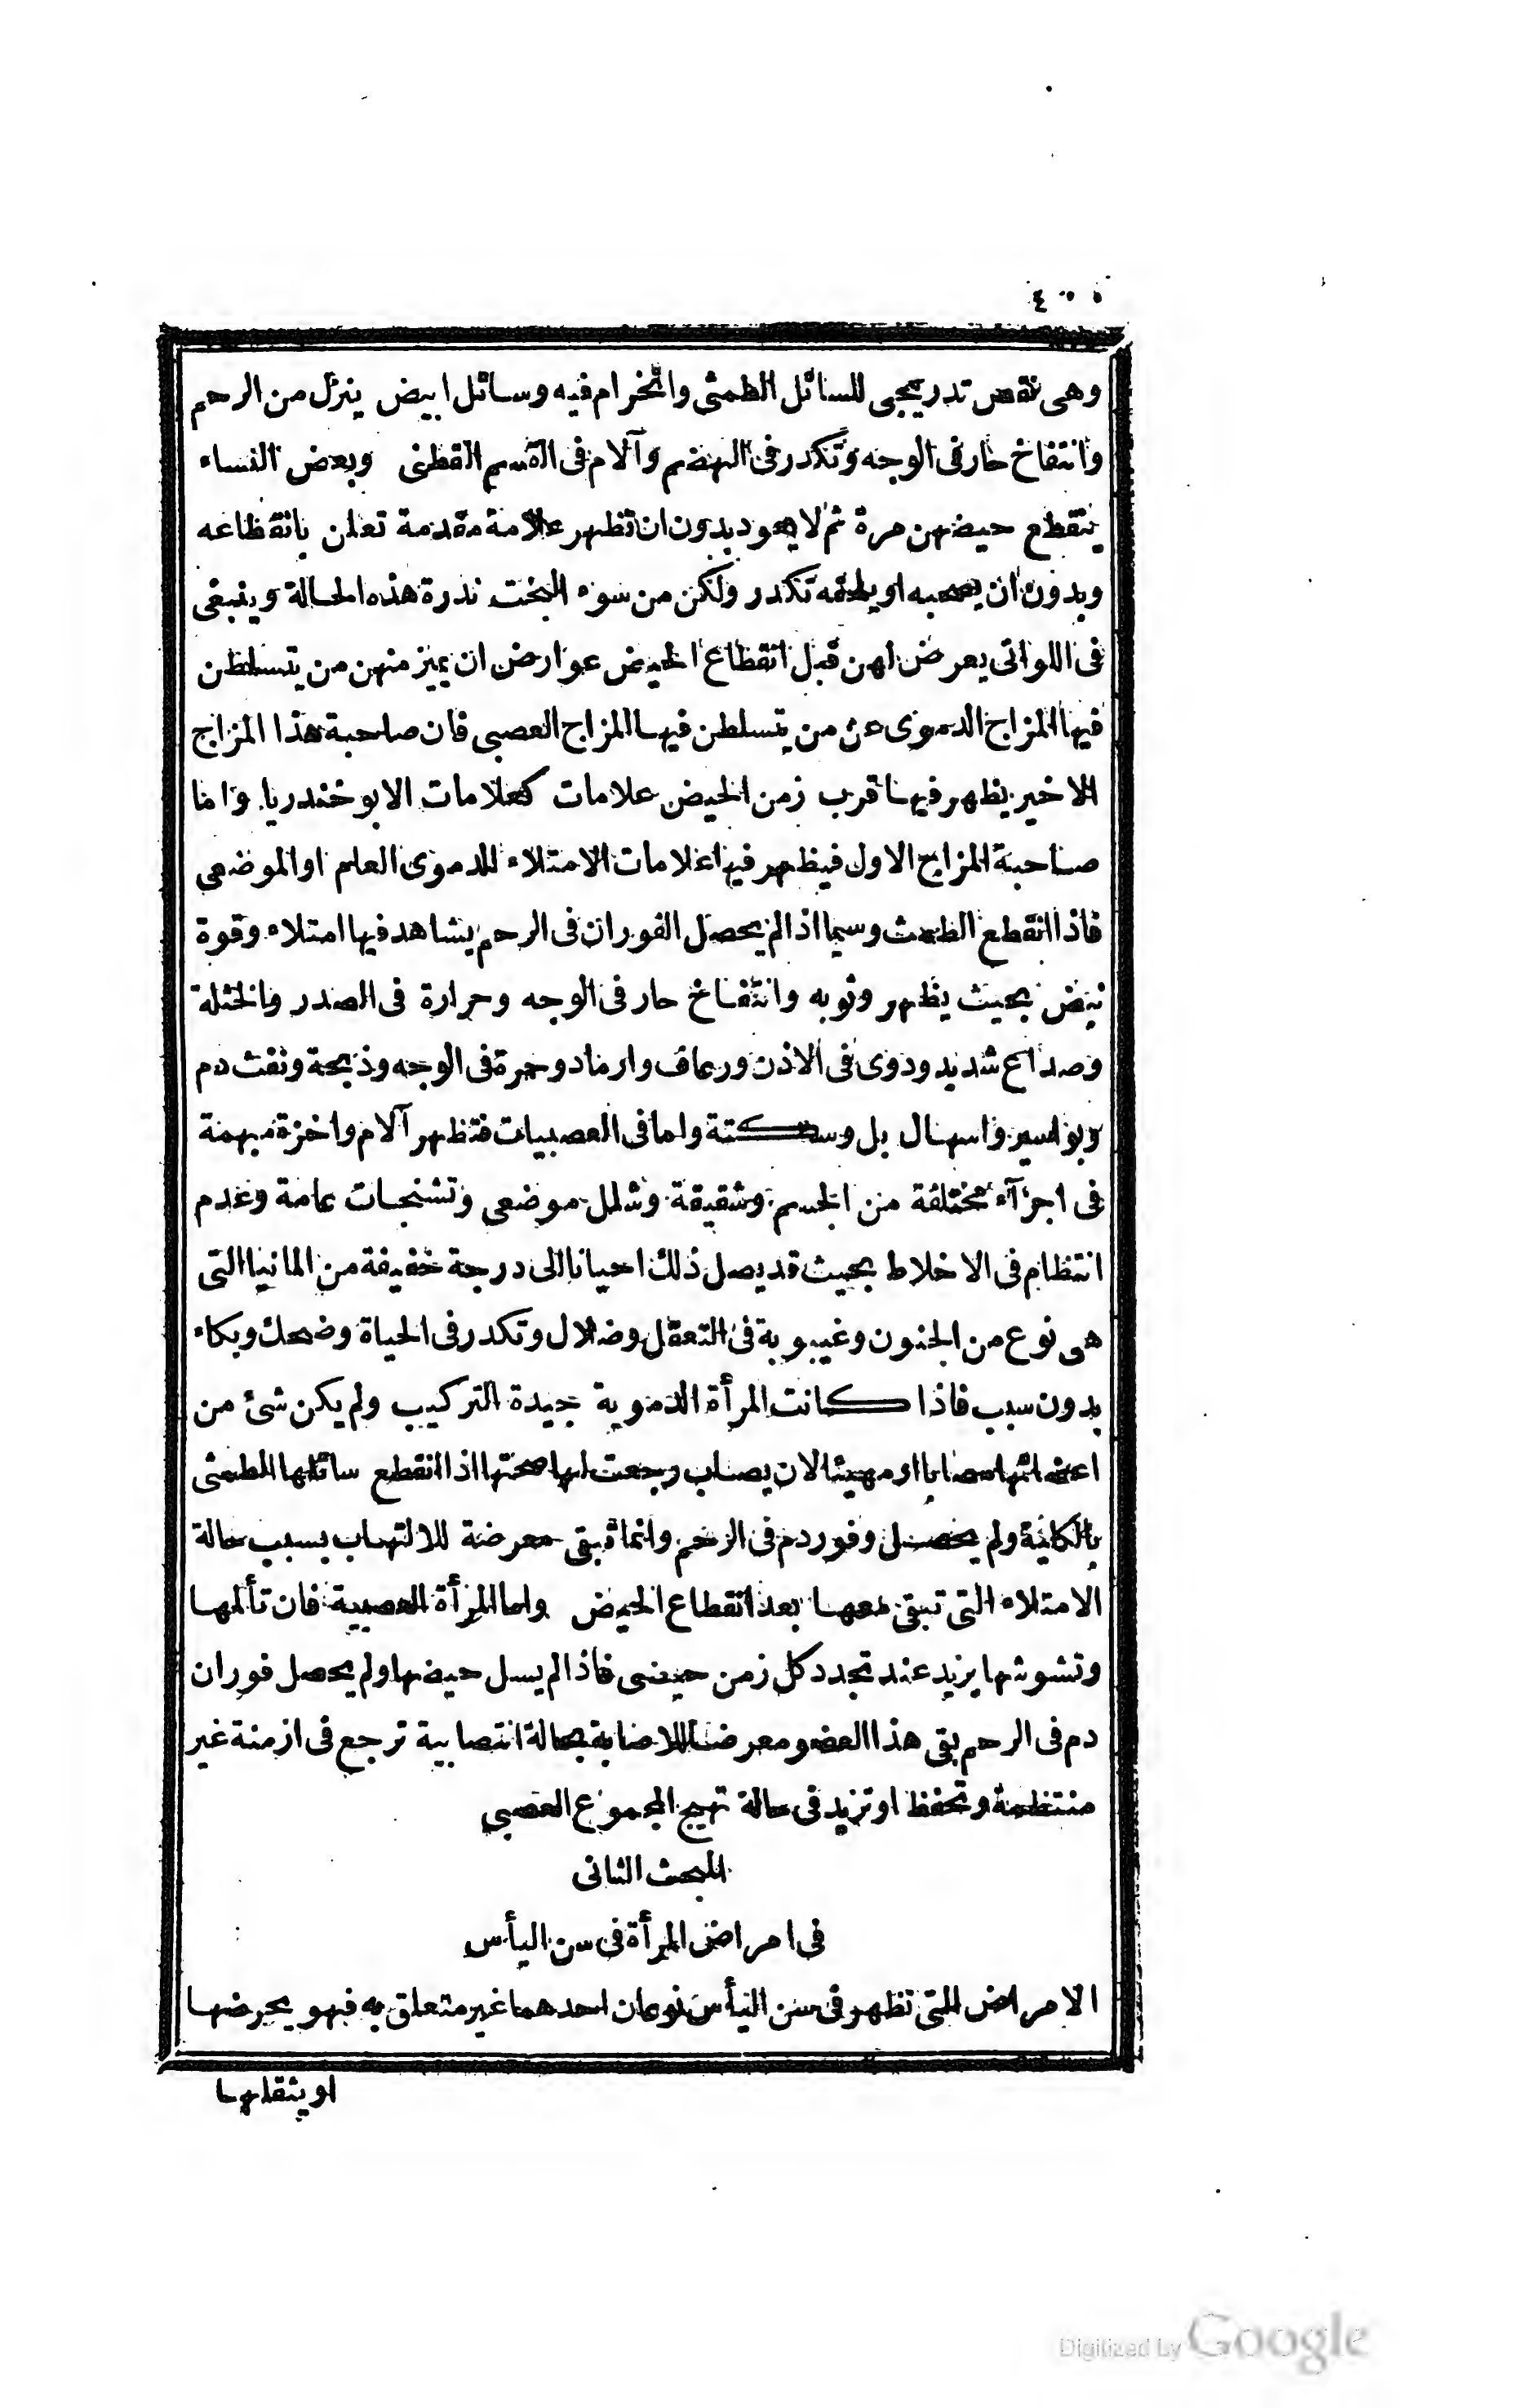 وهى نقص تدريجى للسائل الطمثى وانخرام فيه وسائل ابيض ينزل من الرحم
وانتفاخ حار فى الوجه وتكدر فى الهضم وآلام فى القسم القطنى وبعض النساء
ينقطع حيضهن مرة ثم لا يعود بدون ان تظهر علامة مقدمة تعلن بانقطاعه
وبدون ان يصحبه او يلحقه تكدر ولكن من سوء البخت ندرة هذه الحالة وينبغى
فى اللواتى يعرض لهن قبل انقطاع الحيض عوارض ان يميز منهن من يتسلطن
فيها المزاج الدموى عن من يتسلطن فيها المزاج العصبى فان صاحبة هذا المزاج
الاخير يظهر فيها قرب زمن الحيض علامات كعلامات الابوخندريا واما
صاحبة المزاج الاول فيظهر فيها علامات الامتلاء الدموى العام او الموضعى
فاذا انقطع الطمث وسيما اذا لم يحصل الفوران فى الرحم يشاهد فيها امتلاء وقوة
نبض بحيث يظهر وثوبه وانتفاخ حار فى الوجه وحرارة فى الصدر والخثلة
وصداع شديد ودوى فى الاذن ورعاف وارماد وحمرة فى الوجه وذبحة ونفث دم
وبواسير واسهال بل وسكتة واما فى العصبيات فتظهر آلام واخزة مبهمة
فى اجزآء مختلفة من الجسم وشقيقة وشلل موضعى وتشنجات عامة وعدم
انتظام فى الاخلاط بحيث قد يصل ذلك احيانا الى درجة خفيفة من المانيا التى
هى نوع من الجنون وغيبوبة فى التعقل وضلال وتكدر فى الحياة وضحك وبكاء
بدون سبب فاذا كانت المرأة الدموية جيدة التركيب ولم يكن شئ من
اعضائها مصابا او مهيئا لان يصاب رجعت لها صحتها اذا انقطع سائلها الطمثى
بالكلية ولم يحصل وفور دم فى الرحم وانما تبقى معرضة للالتهاب بسبب حالة
الامتلاء التى تبقى معها بعد انقطاع الحيض واما المرأة العصبية فان تألمها
وتشوشها يزيد عند تجدد كل زمن حيضى فاذا لم يسل حيضها ولم يحصل فوران
دم فى الرحم بقى هذا العضو معرضا للاصابة بحالة انتصابية ترجع فى ازمنة غير
منتظمة وتحفظ او تزيد فى حالة تهيج المجموع العصبى
المبحث الثانى
فى امراض المرأة فى سن اليأس
الامراض التى تظهر فى سن اليأس نوعان احدهما غير متعلق به فهو يحرضها
او يثقلها
Digitized by Google